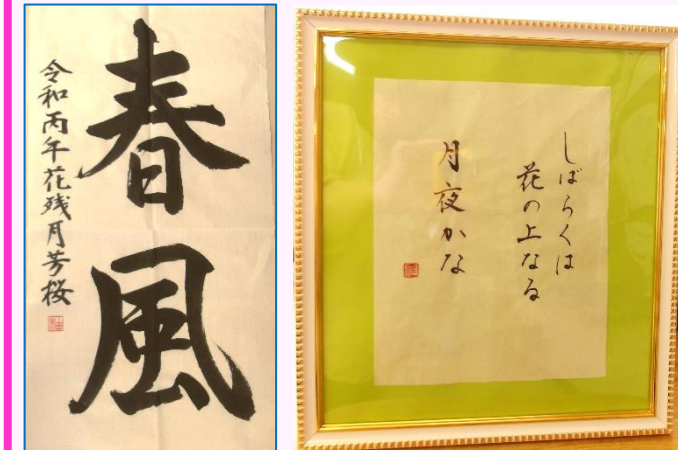 春風
令和丙午花残月芳桜
しばらくは
花の上なる
月夜かな